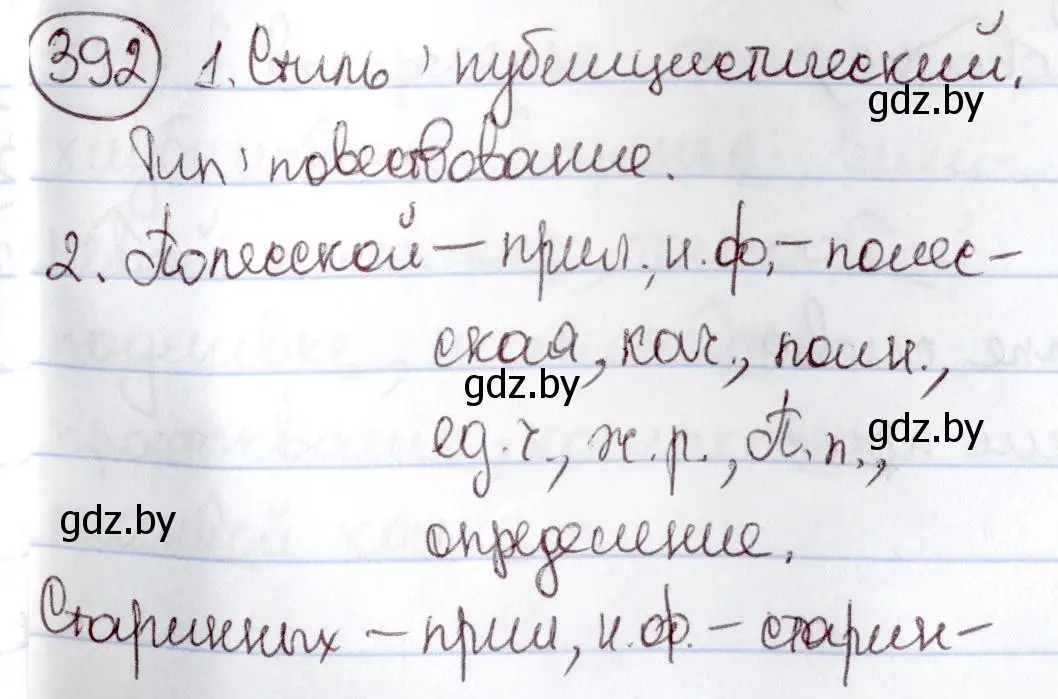 392 1. Стиль, публицистический.
gdz.by
Тип, повествование.
2. Полесской — прил., н.ф. — полес-
ская, кач., полн.,
gdz.by
ед.ч., ж.р., П.п.,
gdz.by
gdz.by
определение.
Старинных — прил, н.ф. — старин-